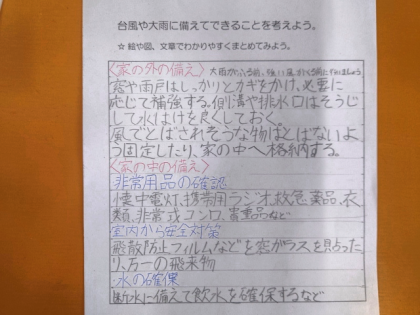 台風や大雨に備えてできることを考えよう。
☆絵や図、文章でわかりやすくまとめてみよう。
〈家の外の備え〉大雨がふる前、強い風がふく前に
窓や雨戸はしっかりとカギをかけ、必要に
応じて補強する。側溝や排水口はそうじ
して水はけを良くしておく。
風でとばされそうな物はとばないよ
う固定したり、家の中へ格納する。
〈家の中の備え〉
非常用品の確認
懐中電灯、携帯用ラジオ、救急薬品、衣
類、非常 コンロ、貴重品など
室内から安全対策
飛散防止フィルムなどを窓ガラスを貼った
り、万一の飛来物
・水の確保
断水に備えて飲水を確保するなど